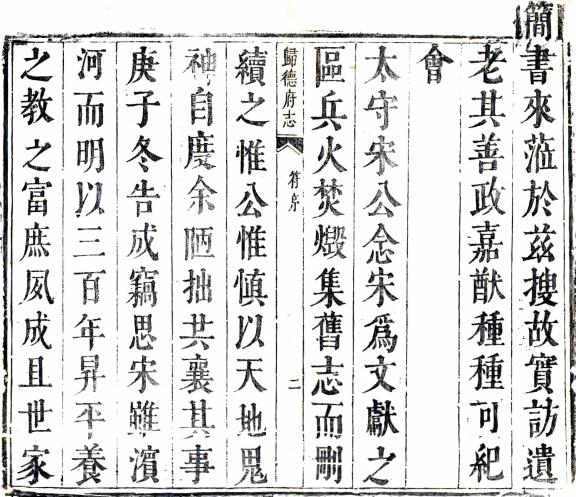 簡書來蒞於茲搜故實訪遺
老其善政嘉猷種種可紀
會
太守宋公念宋爲文獻之
區兵火焚燬集舊志而刪
歸德府志 符序 二
續之惟公惟慎以天地鬼
神自度余陋拙共襄其事
庚子冬告成竊思宋雖濱
河而明以三百年昇平養
之教之富庶夙成且世家